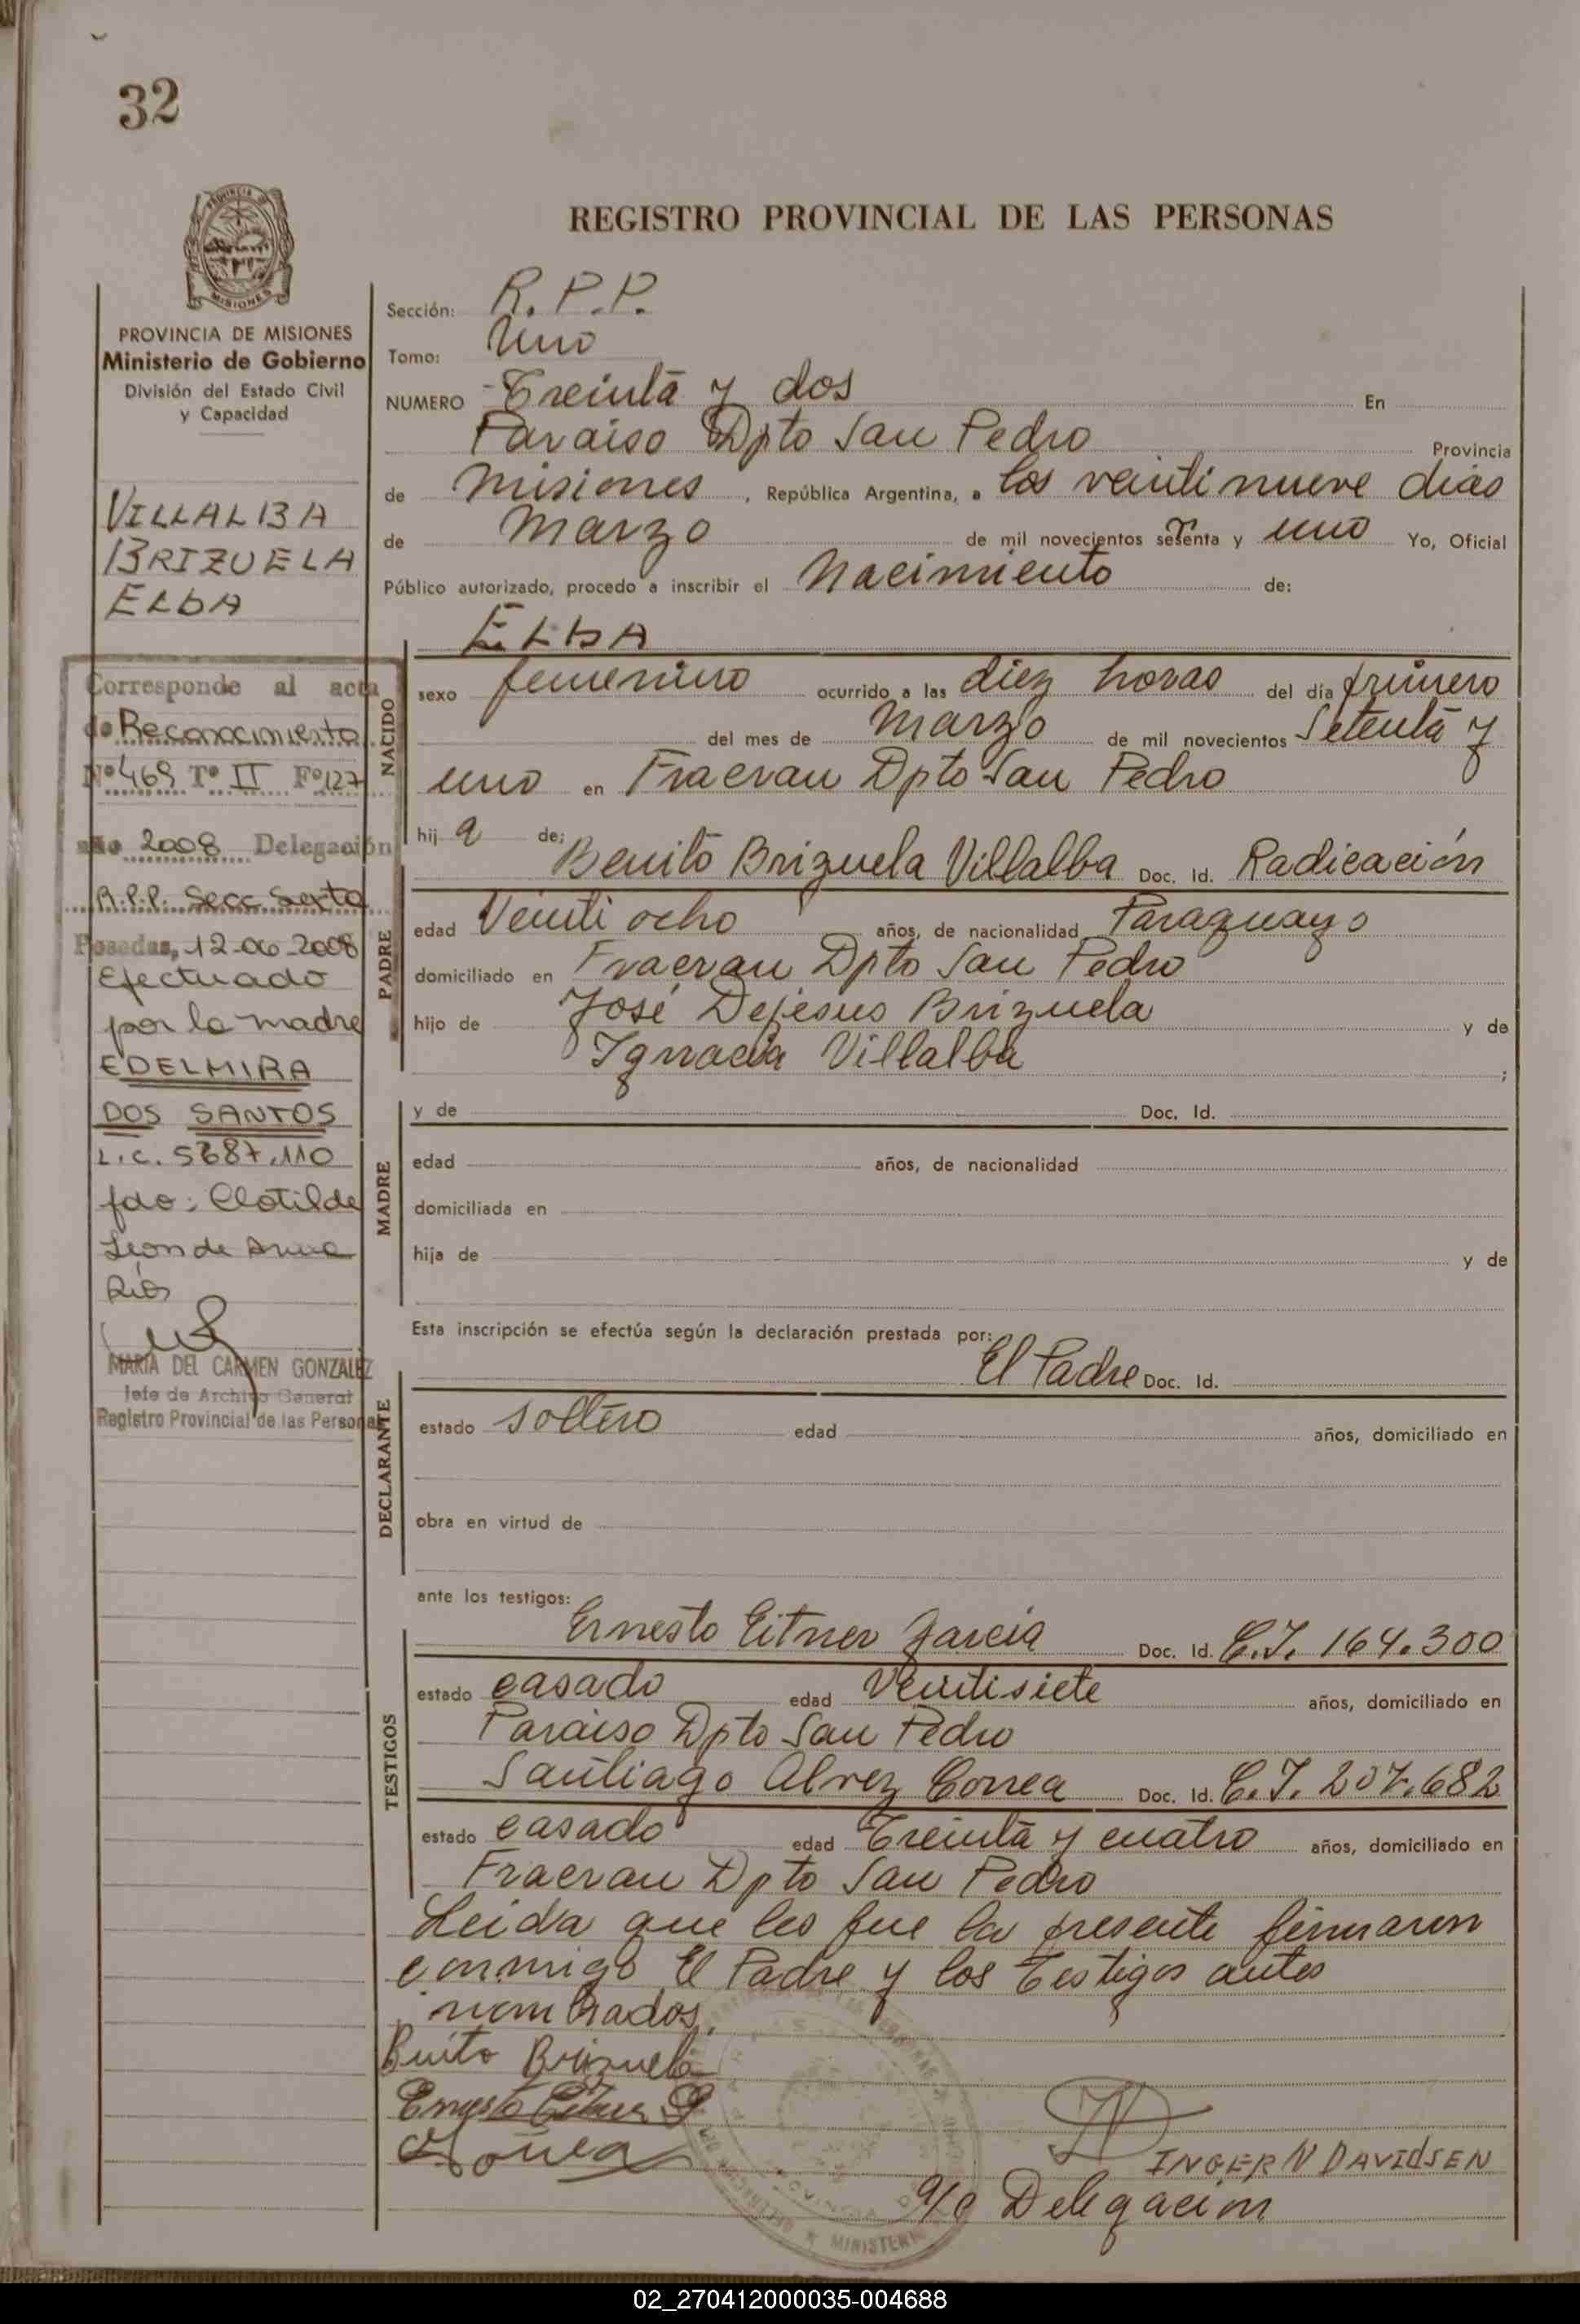 32
REGISTRO PROVINCIAL DE LAS PERSONAS
MISIONES
PROVINCIA DE MISIONES
Ministerio de Gobierno
División del Estado Civil
y Capacidad
VILLALBA
BRIZUELA
ELBA
Corresponde al acta
de Reconocimiento
Nº 469 Tº II Fº 127
año 2008 Delegación
R.P.P. Secc Sexta
Posadas, 12-06-2008
Efectuado
por la madre
EDELMIRA
DOS SANTOS
L.C. 5687.110
fdo: Clotilde
Leon de
Ríos
MARIA DEL CARMEN GONZALEZ
Jefe de Archivo General
Registro Provincial de las Personas
Sección: R. P. P.
Tomo: Uno
NUMERO -Treinta y dos En
Paraiso Dpto San Pedro Provincia
de Misiones, República Argentina, a los veintinueve dias
de Marzo de mil novecientos setenta y uno Yo, Oficial
Público autorizado, procedo a inscribir el Nacimiento de:
ELBA
NACIDO
sexo femenino ocurrido a las diez horas del día primero
del mes de Marzo de mil novecientos Setenta y
uno en Fracran Dpto San Pedro
hij a de:
PADRE
Benito Brizuela Villalba Doc. Id. Radicación
edad Veinti ocho años, de nacionalidad Paraguayo
domiciliado en Fracran Dpto San Pedro
hijo de José Dejesus Brizuela y de
Ignacia Villalba ;
MADRE
y de Doc. Id.
edad años, de nacionalidad
domiciliada en
hija de y de
Esta inscripción se efectúa según la declaración prestada por:
DECLARANTE
El Padre Doc. Id.
estado soltero edad años, domiciliado en
obra en virtud de
ante los testigos:
TESTIGOS
Ernesto Eitner Garcia Doc. Id. C.I. 164.300
estado casado edad Veintisiete años, domiciliado en
Paraiso Dpto San Pedro
Santiago Alvez Correa Doc. Id. C.I. 207.682
estado casado edad Treinta y cuatro años, domiciliado en
Fracran Dpto San Pedro
Leida que les fue la presente firmaron
conmigo El Padre y los Testigos antes
nombrados.
Benito Brizuela
Ernesto Eitner G
INGER N DAVIDSEN
a/c Delegacion
02_270412000035-004688